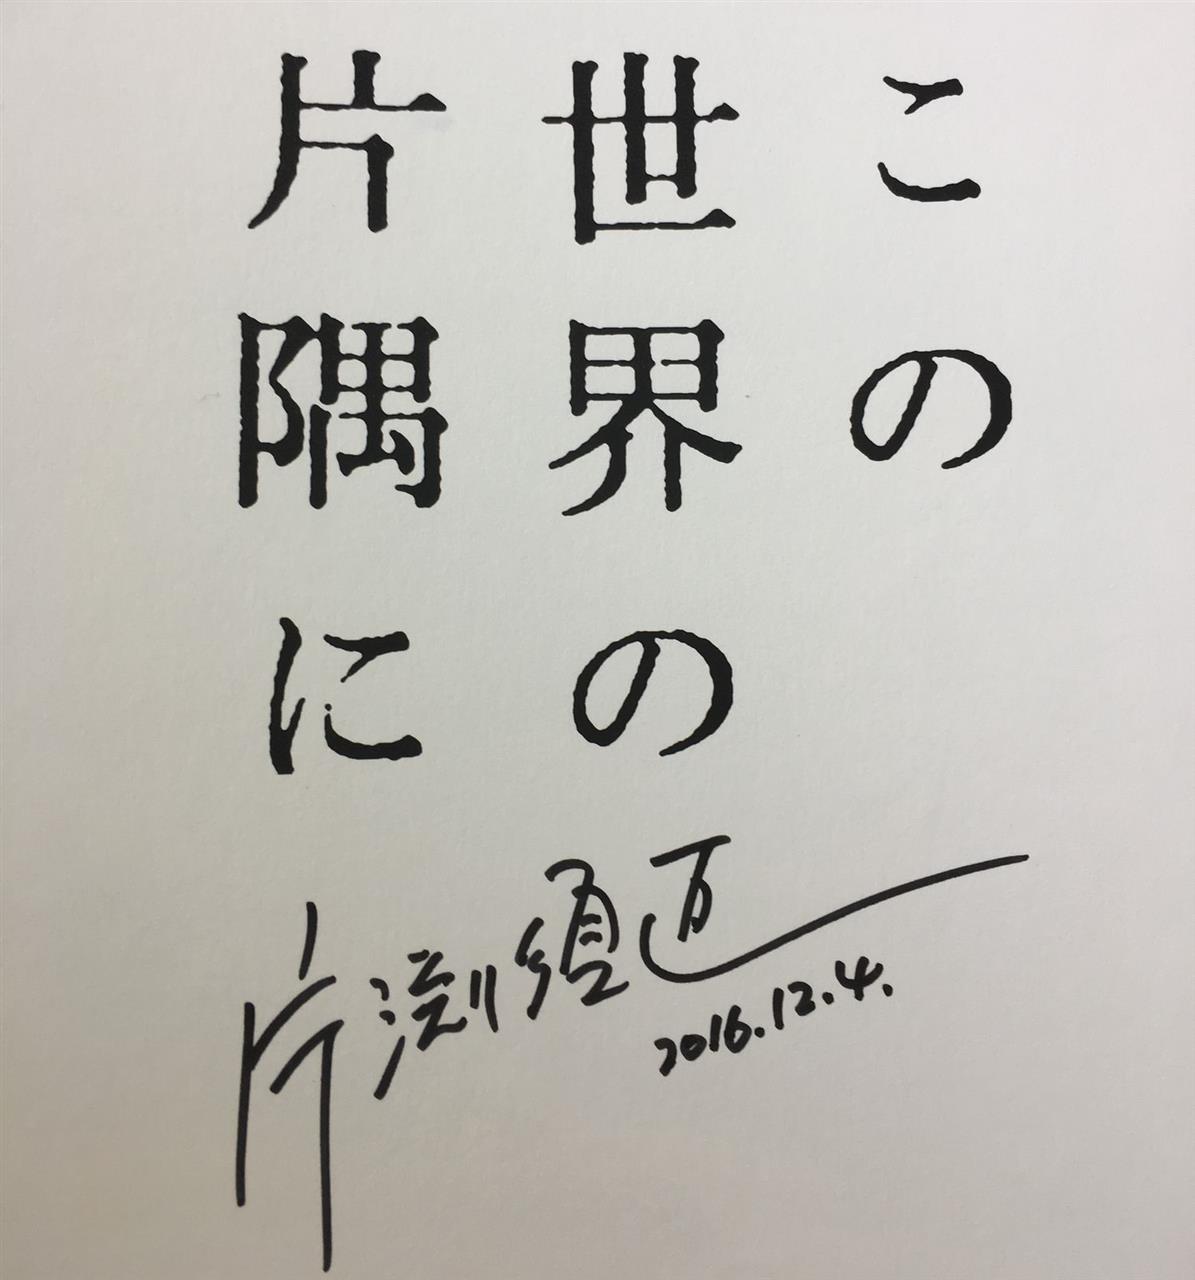 この
世界の
片隅に
片渕須直
2016.12.4.